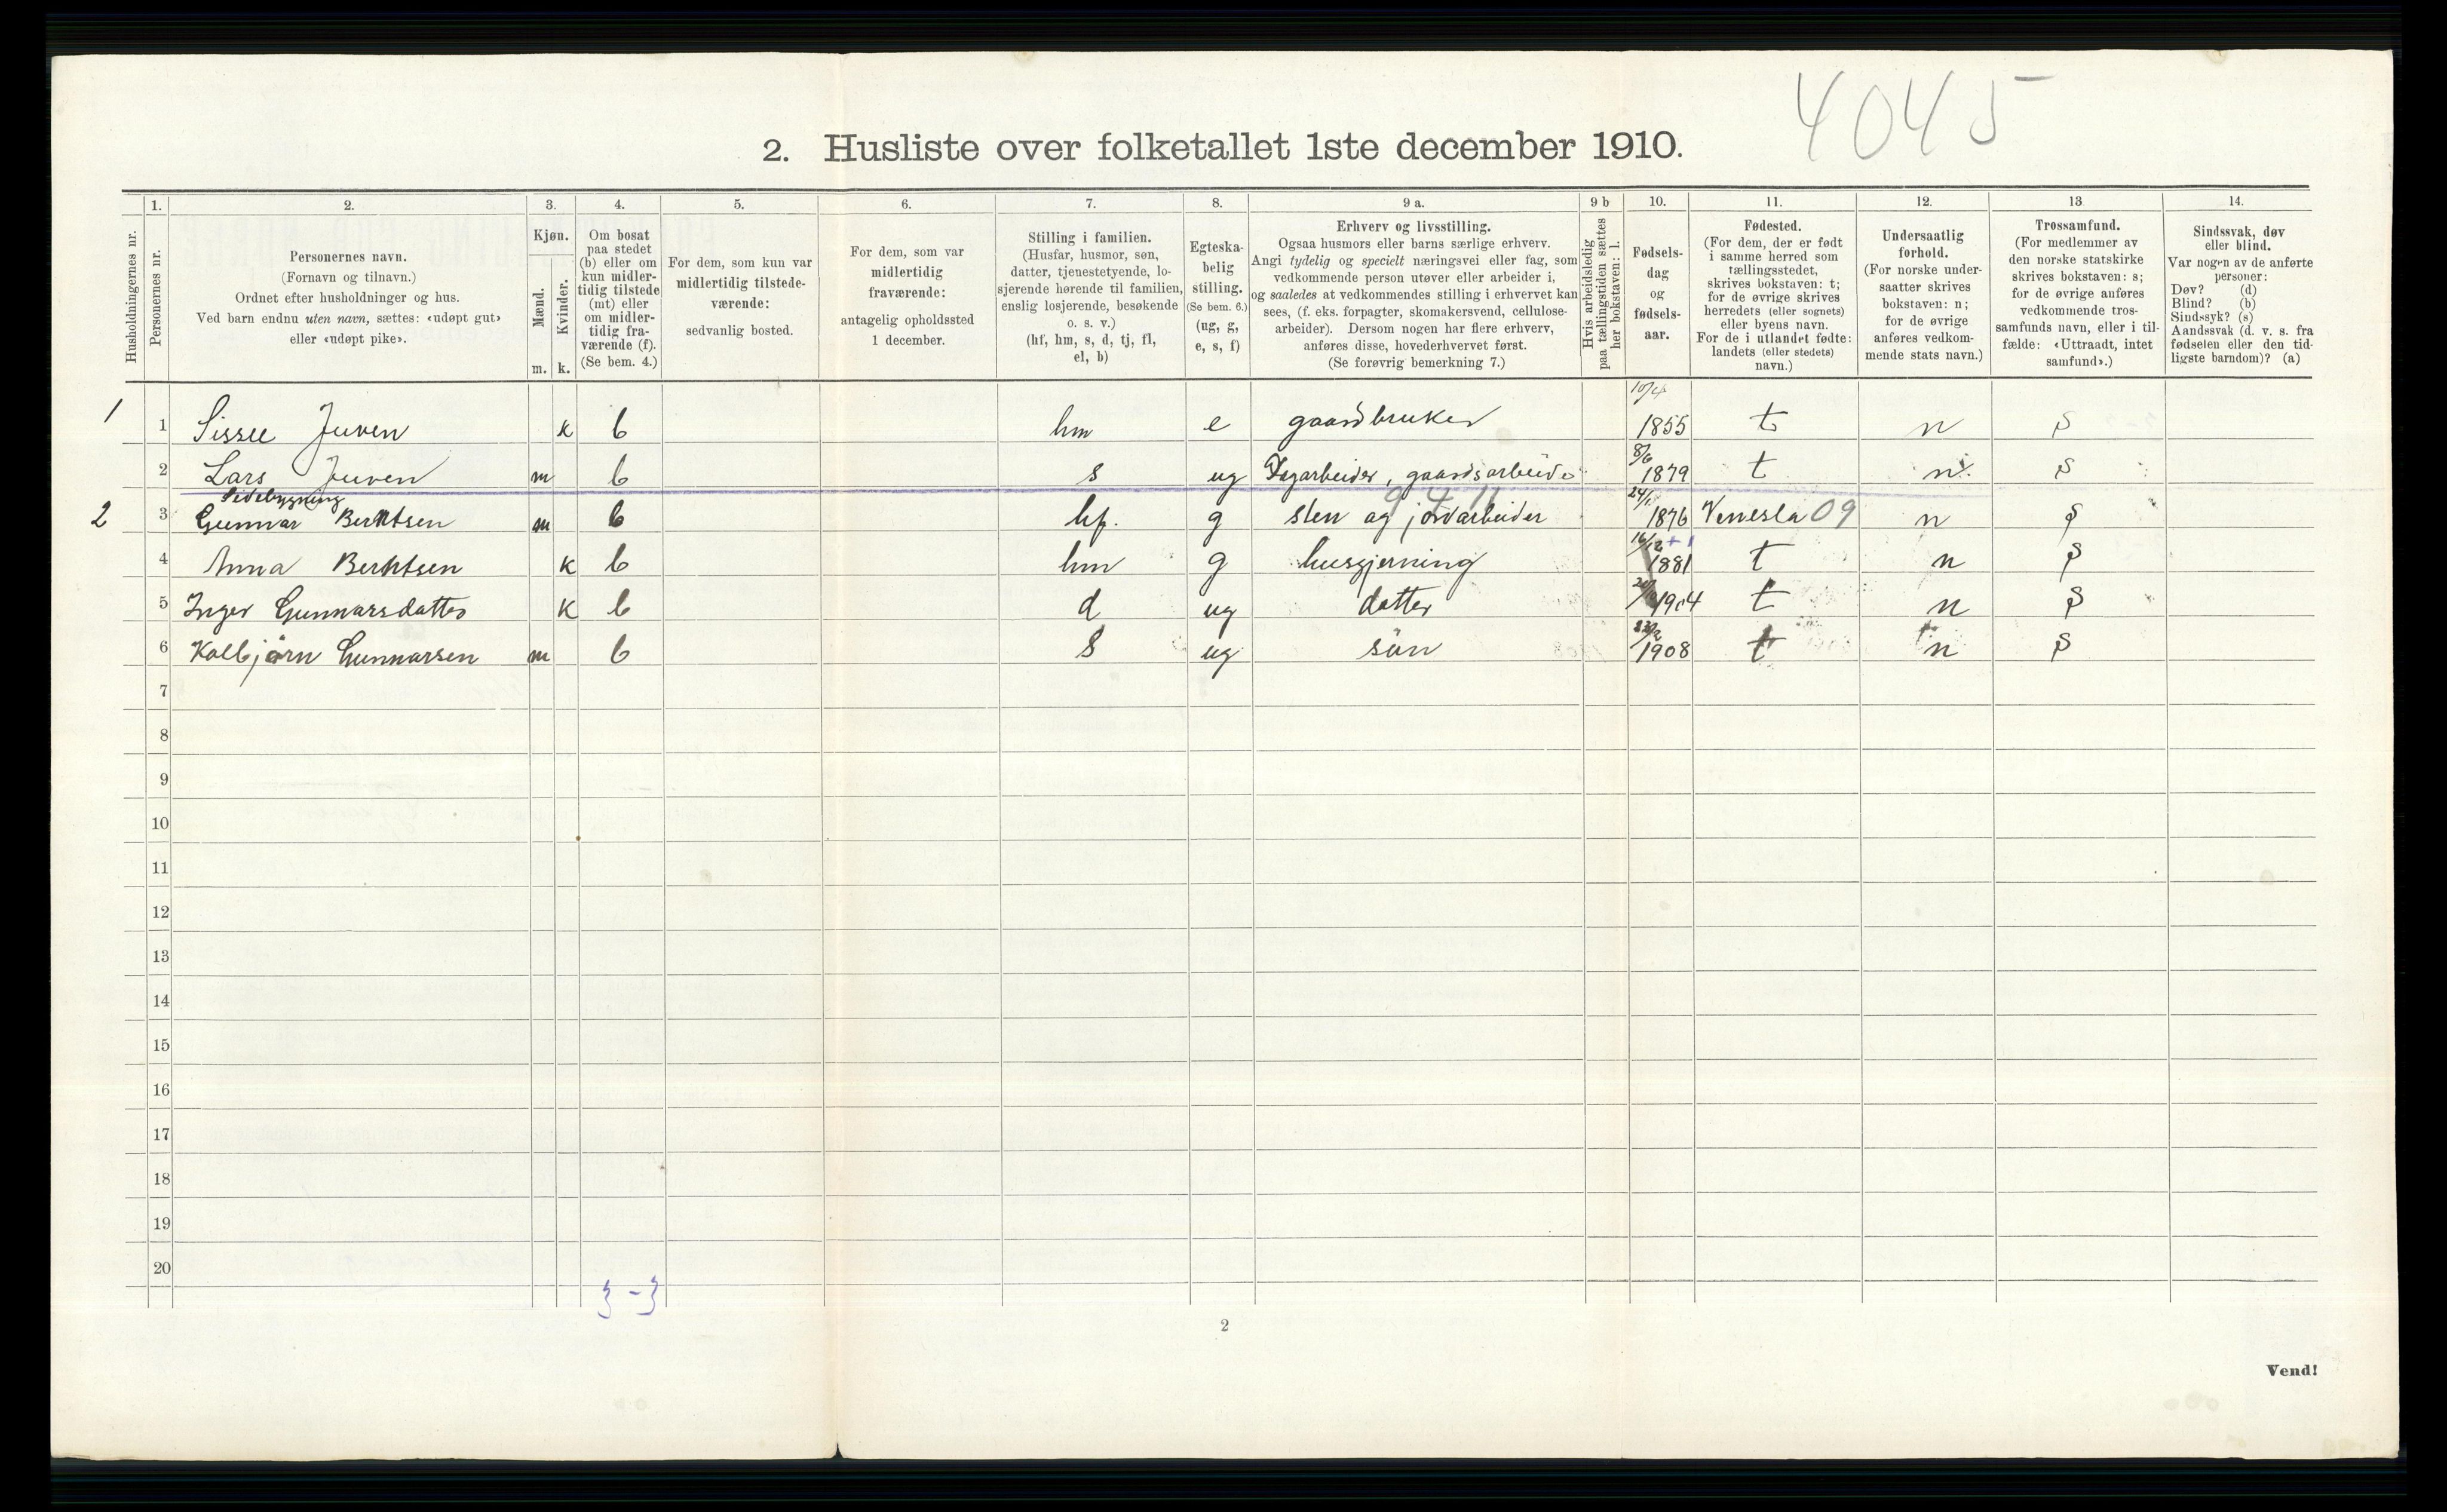 4045
2. Husliste over folketallet 1ste december 1910.
Husholdningernes nr.
1. Personernes nr.
2. Personernes navn.
(Fornavn og tilnavn.)
Ordnet efter husholdninger og hus.
Ved barn endnu uten navn, sættes: «udøpt gut»
eller «udøpt pike».
3. Kjøn.
Mænd. m.
Kvinder. k.
4. Om bosat
paa stedet
(b) eller om
kun midler-
tidig tilstede
(mt) eller
om midler-
tidig fra-
værende (f).
(Se bem. 4.)
5. For dem, som kun var
midlertidig tilstede-
værende:
sedvanlig bosted.
6. For dem, som var
midlertidig
fraværende:
antagelig opholdssted
1 december.
7. Stilling i familien.
(Husfar, husmor, søn,
datter, tjenestetyende, lo-
sjerende hørende til familien,
enslig losjerende, besøkende
o. s. v.)
(hf, hm, s, d, tj, fl,
el, b)
8. Egteska-
belig
stilling.
(Se bem. 6.)
(ug, g,
e, s, f)
9 a. Erhverv og livsstilling.
Ogsaa husmors eller barns særlige erhverv.
Angi tydelig og specielt næringsvei eller fag, som
vedkommende person utøver eller arbeider i,
og saaledes at vedkommendes stilling i erhvervet kan
sees, (f. eks. forpagter, skomakersvend, cellulose-
arbeider). Dersom nogen har flere erhverv,
anføres disse, hovederhvervet først.
(Se forøvrig bemerkning 7.)
9 b Hvis arbeidsledig
paa tællingstiden sættes
her bokstaven: l.
10. Fødsels-
dag
og
fødsels-
aar.
11. Fødested.
(For dem, der er født
i samme herred som
tællingsstedet,
skrives bokstaven: t;
for de øvrige skrives
herredets (eller sognets)
eller byens navn.
For de i utlandet fødte:
landets (eller stedets)
navn.)
12. Undersaatlig
forhold.
(For norske under-
saatter skrives
bokstaven: n;
for de øvrige
anføres vedkom-
mende stats navn.)
13 Trossamfund.
(For medlemmer av
den norske statskirke
skrives bokstaven: s;
for de øvrige anføres
vedkommende tros-
samfunds navn, eller i til-
fælde: «Uttraadt, intet
samfund».)
14. Sindssvak, døv
eller blind.
Var nogen av de anførte
personer:
Døv? (d)
Blind? (b)
Sindssyk? (s)
Aandssvak (d. v. s. fra
fødselen eller den tid-
ligste barndom)? (a)
1 1 Sissel Juven k b hm e gaardbruker 10/4 1855 t n s
2 Lars Juven m b s ug Dagarbeider, gaardsarbeide 8/6 1879 t n s
Sidebygning
9 4 11
2 3 Gunnar Berntsen m b hf. g sten og jordarbeider 24/1 1876 Vennesla 09 n s
4 Anna Berntsen k b hm g husgjerning 16/12 1881 t n s
5 Inger Gunnarsdatter k b d ug datter 1904 t n s
6 Kolbjørn Gunnarsen m b s ug sön 1908 t n s
7
8
9
10
11
12
13
14
15
16
17
18
19
20
2
Vend!